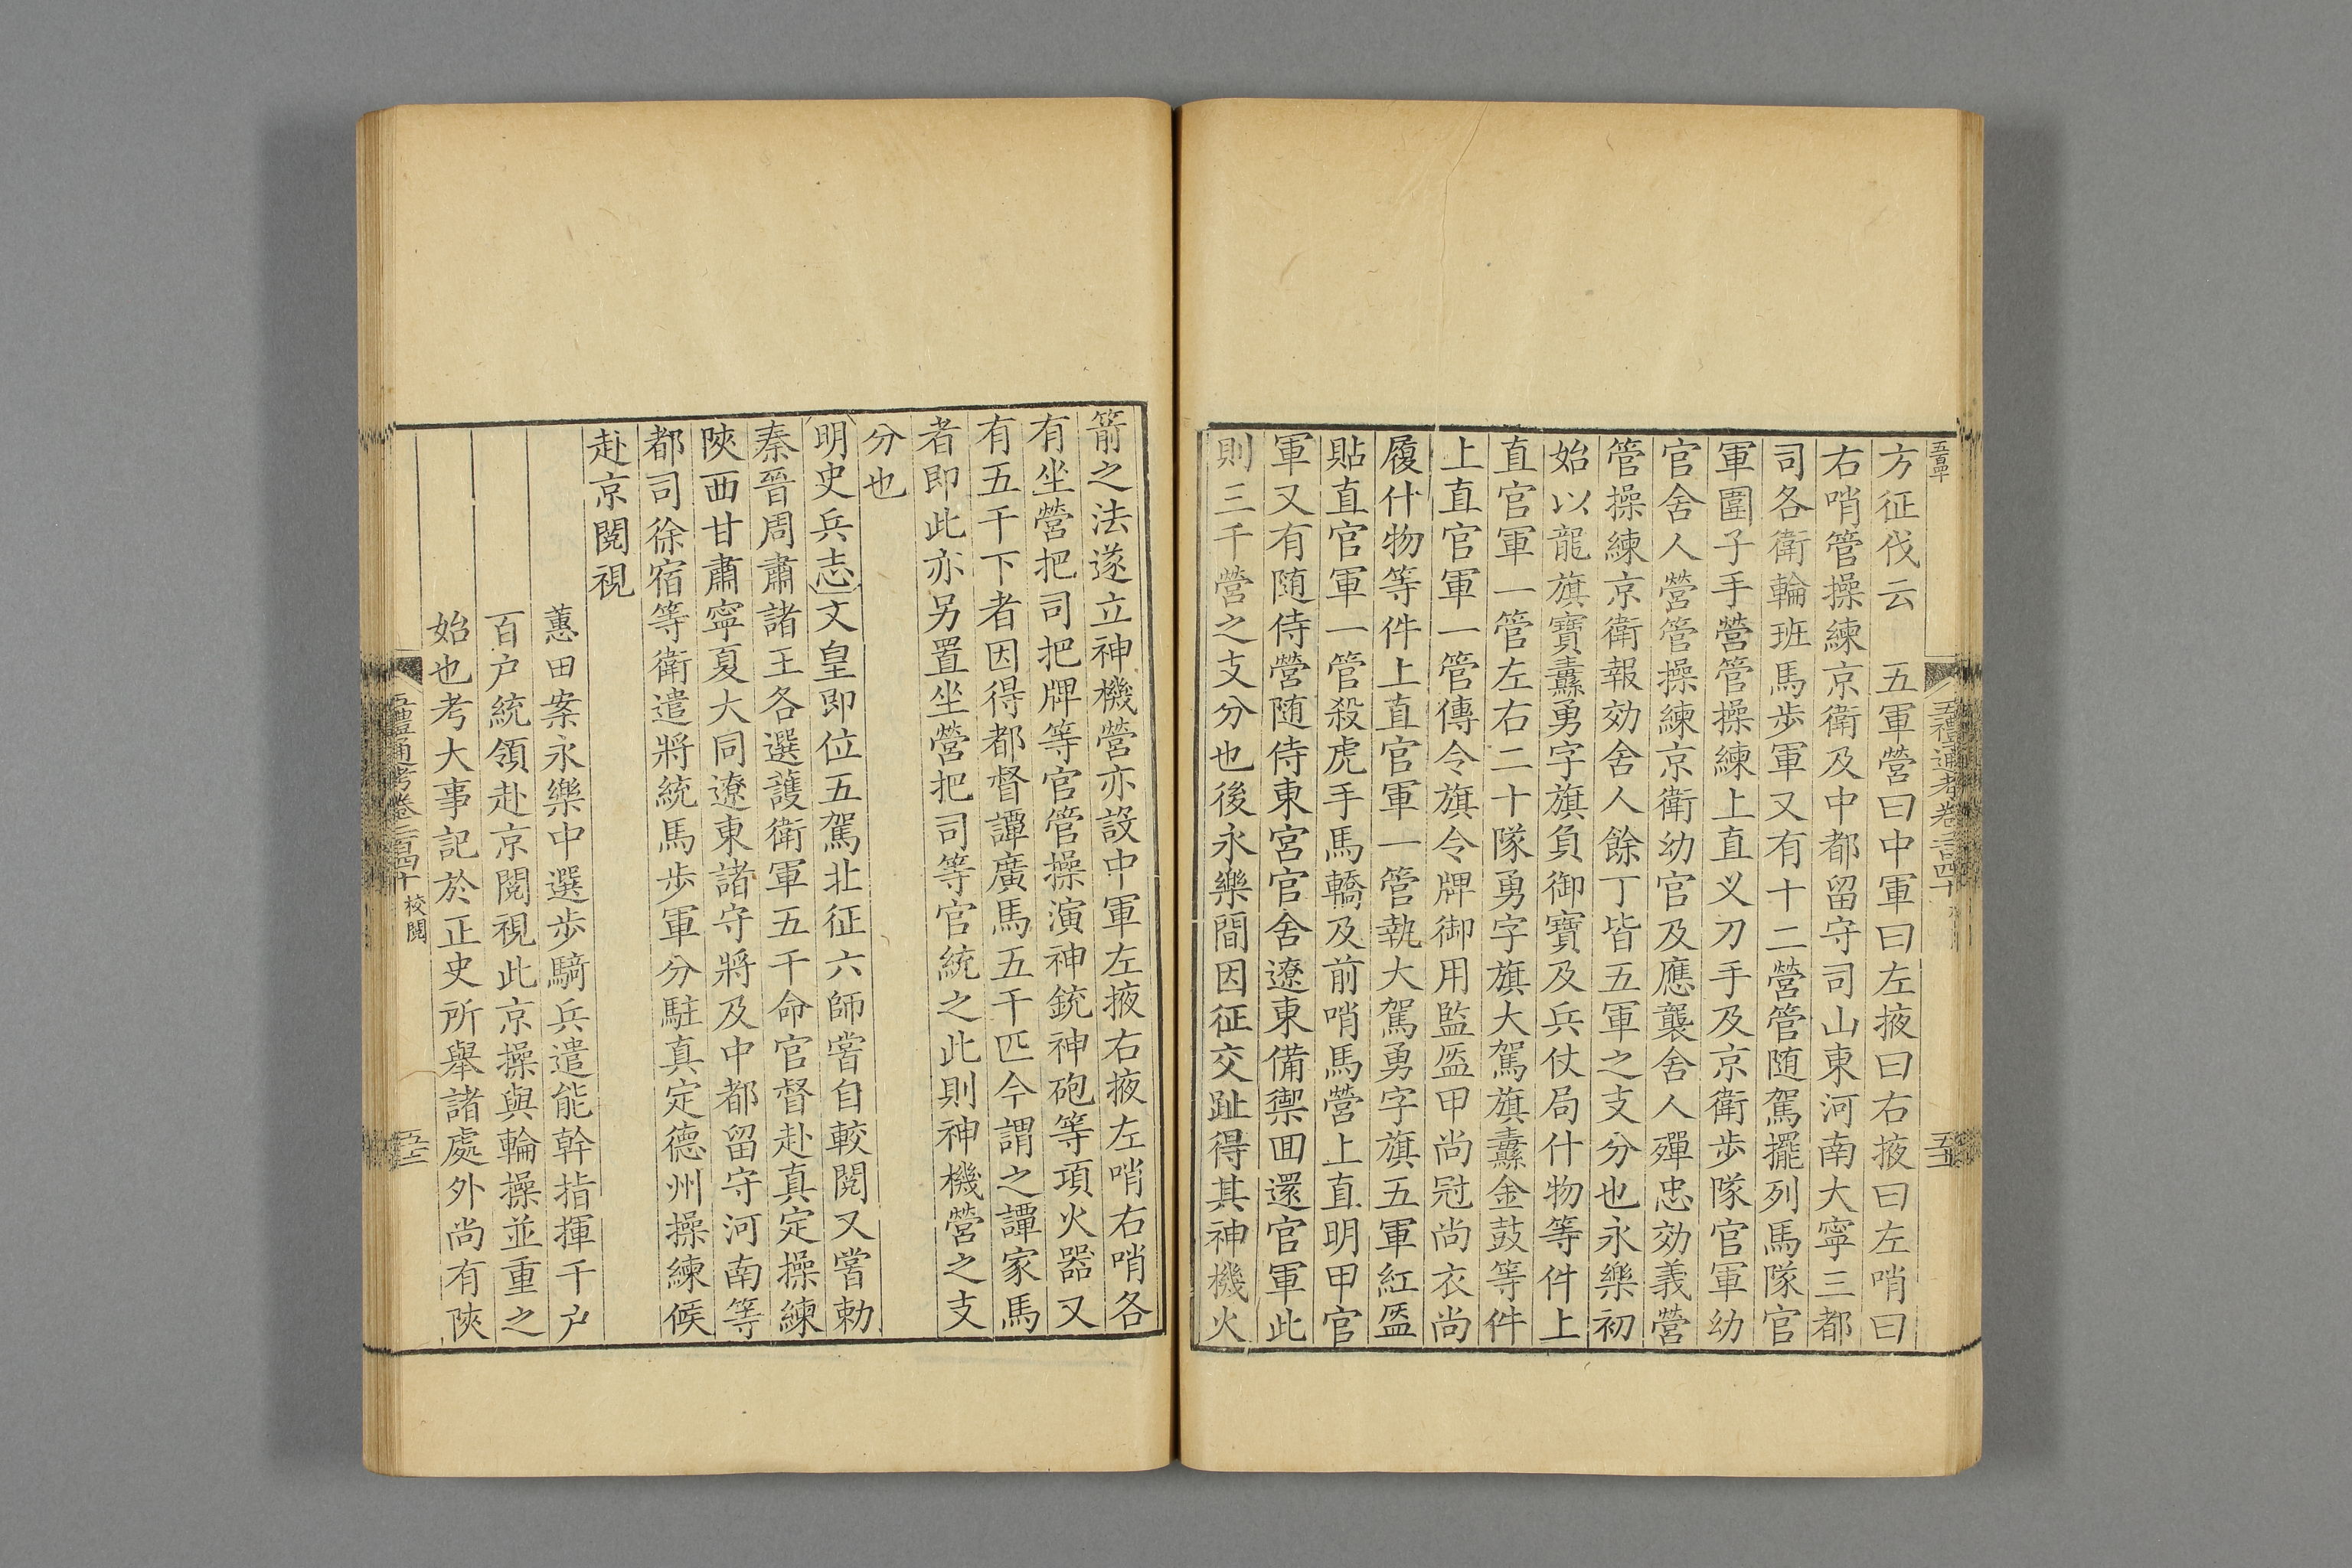 方征伐云　五軍營曰中軍曰左掖曰右掖曰左哨曰
右哨管操練京衛及中都留守司山東河南大寧三都
司各衛輪班馬步軍又有十二營管随駕擺列馬隊官
軍圍子手營管操練上直义刀手及京衛步隊官軍幼
官舍人營管操練京衛幼官及應襲舍人殫忠効義營
管操練京衛報効舍人餘丁皆五軍之支分也永樂初
始以龍旗寶纛勇字旗負御寶及兵仗局什物等件上
直官軍一管左右二十隊勇字旗大駕旗纛金鼓等件
上直官軍一管傳令旗令牌御用監盔甲尚冠尚衣尚
履什物等件上直官軍一管執大駕勇字旗五軍紅盔
貼直官軍一管殺虎手馬轎及前哨馬營上直明甲官
軍又有随侍營随侍東宮官舍遼東備禦囬還官軍此
則三千營之支分也後永樂間因征交趾得其神機火
箭之法遂立神機營亦設中軍左掖右掖左哨右哨各
有坐營把司把牌等官管操演神銃神砲等項火器又
有五千下者因得都督譚廣馬五千匹今謂之譚家馬
者即此亦另置坐營把司等官統之此則神機營之支
分也
明史兵志文皇即位五駕北征六師嘗自較閱又嘗勅
秦晉周肅諸王各選護衛軍五千命官督赴真定操練
陝西甘肅寧夏大同遼東諸守將及中都留守河南等
都司徐宿等衛遣將統馬步軍分駐真定德州操練候
赴京閱視
蕙田案永樂中選步騎兵遣能幹指揮千户
百户統領赴京閱視此京操與輪操並重之
始也考大事記於正史所舉諸處外尚有陝
五禮通考卷二百四十 校閱